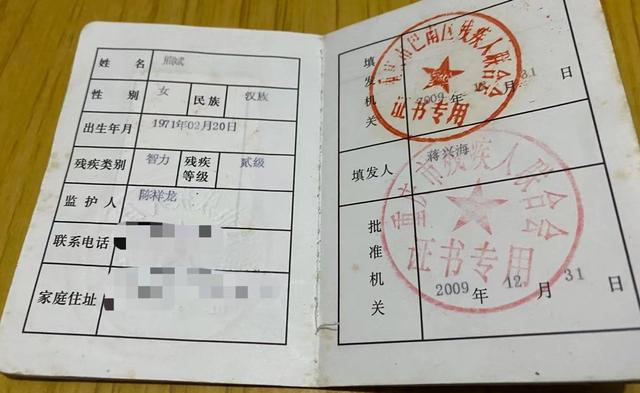 姓 名 熊斌
性 别 女 民族 汉族
出生年月 1971年02月20日
残疾类别 智力 残疾等级 贰级
监 护 人 陈祥龙
联系电话
家庭住址
填发机关 2009 年 31 日
重庆市巴南区残疾人联合会
证书专用
填发人 蒋兴海
批准机关 2009 年 12 月 31 日
重庆市残疾人联合会
证书专用